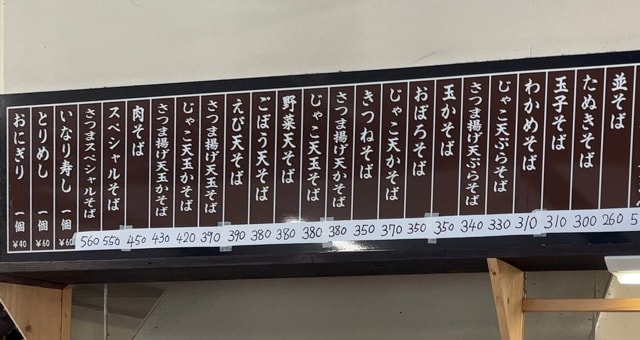 並そば 260
たぬきそば 300
玉子そば 310
わかめそば 310
じゃこ天ぷらそば 330
さつま揚げ天ぷらそば 340
玉かそば 350
おぼろそば 350
じゃこ天かそば 370
きつねそば 350
さつま揚げ天かそば 380
じゃこ天玉そば 380
野菜天そば 380
ごぼう天そば 380
えび天そば 390
さつま揚げ天玉そば 390
じゃこ天玉かそば 420
さつま揚げ天玉かそば 430
肉そば 450
スペシャルそば 550
さつまスペシャルそば 560
いなり寿し 一個 ¥60
とりめし 一個 ¥60
おにぎり 一個 ¥40